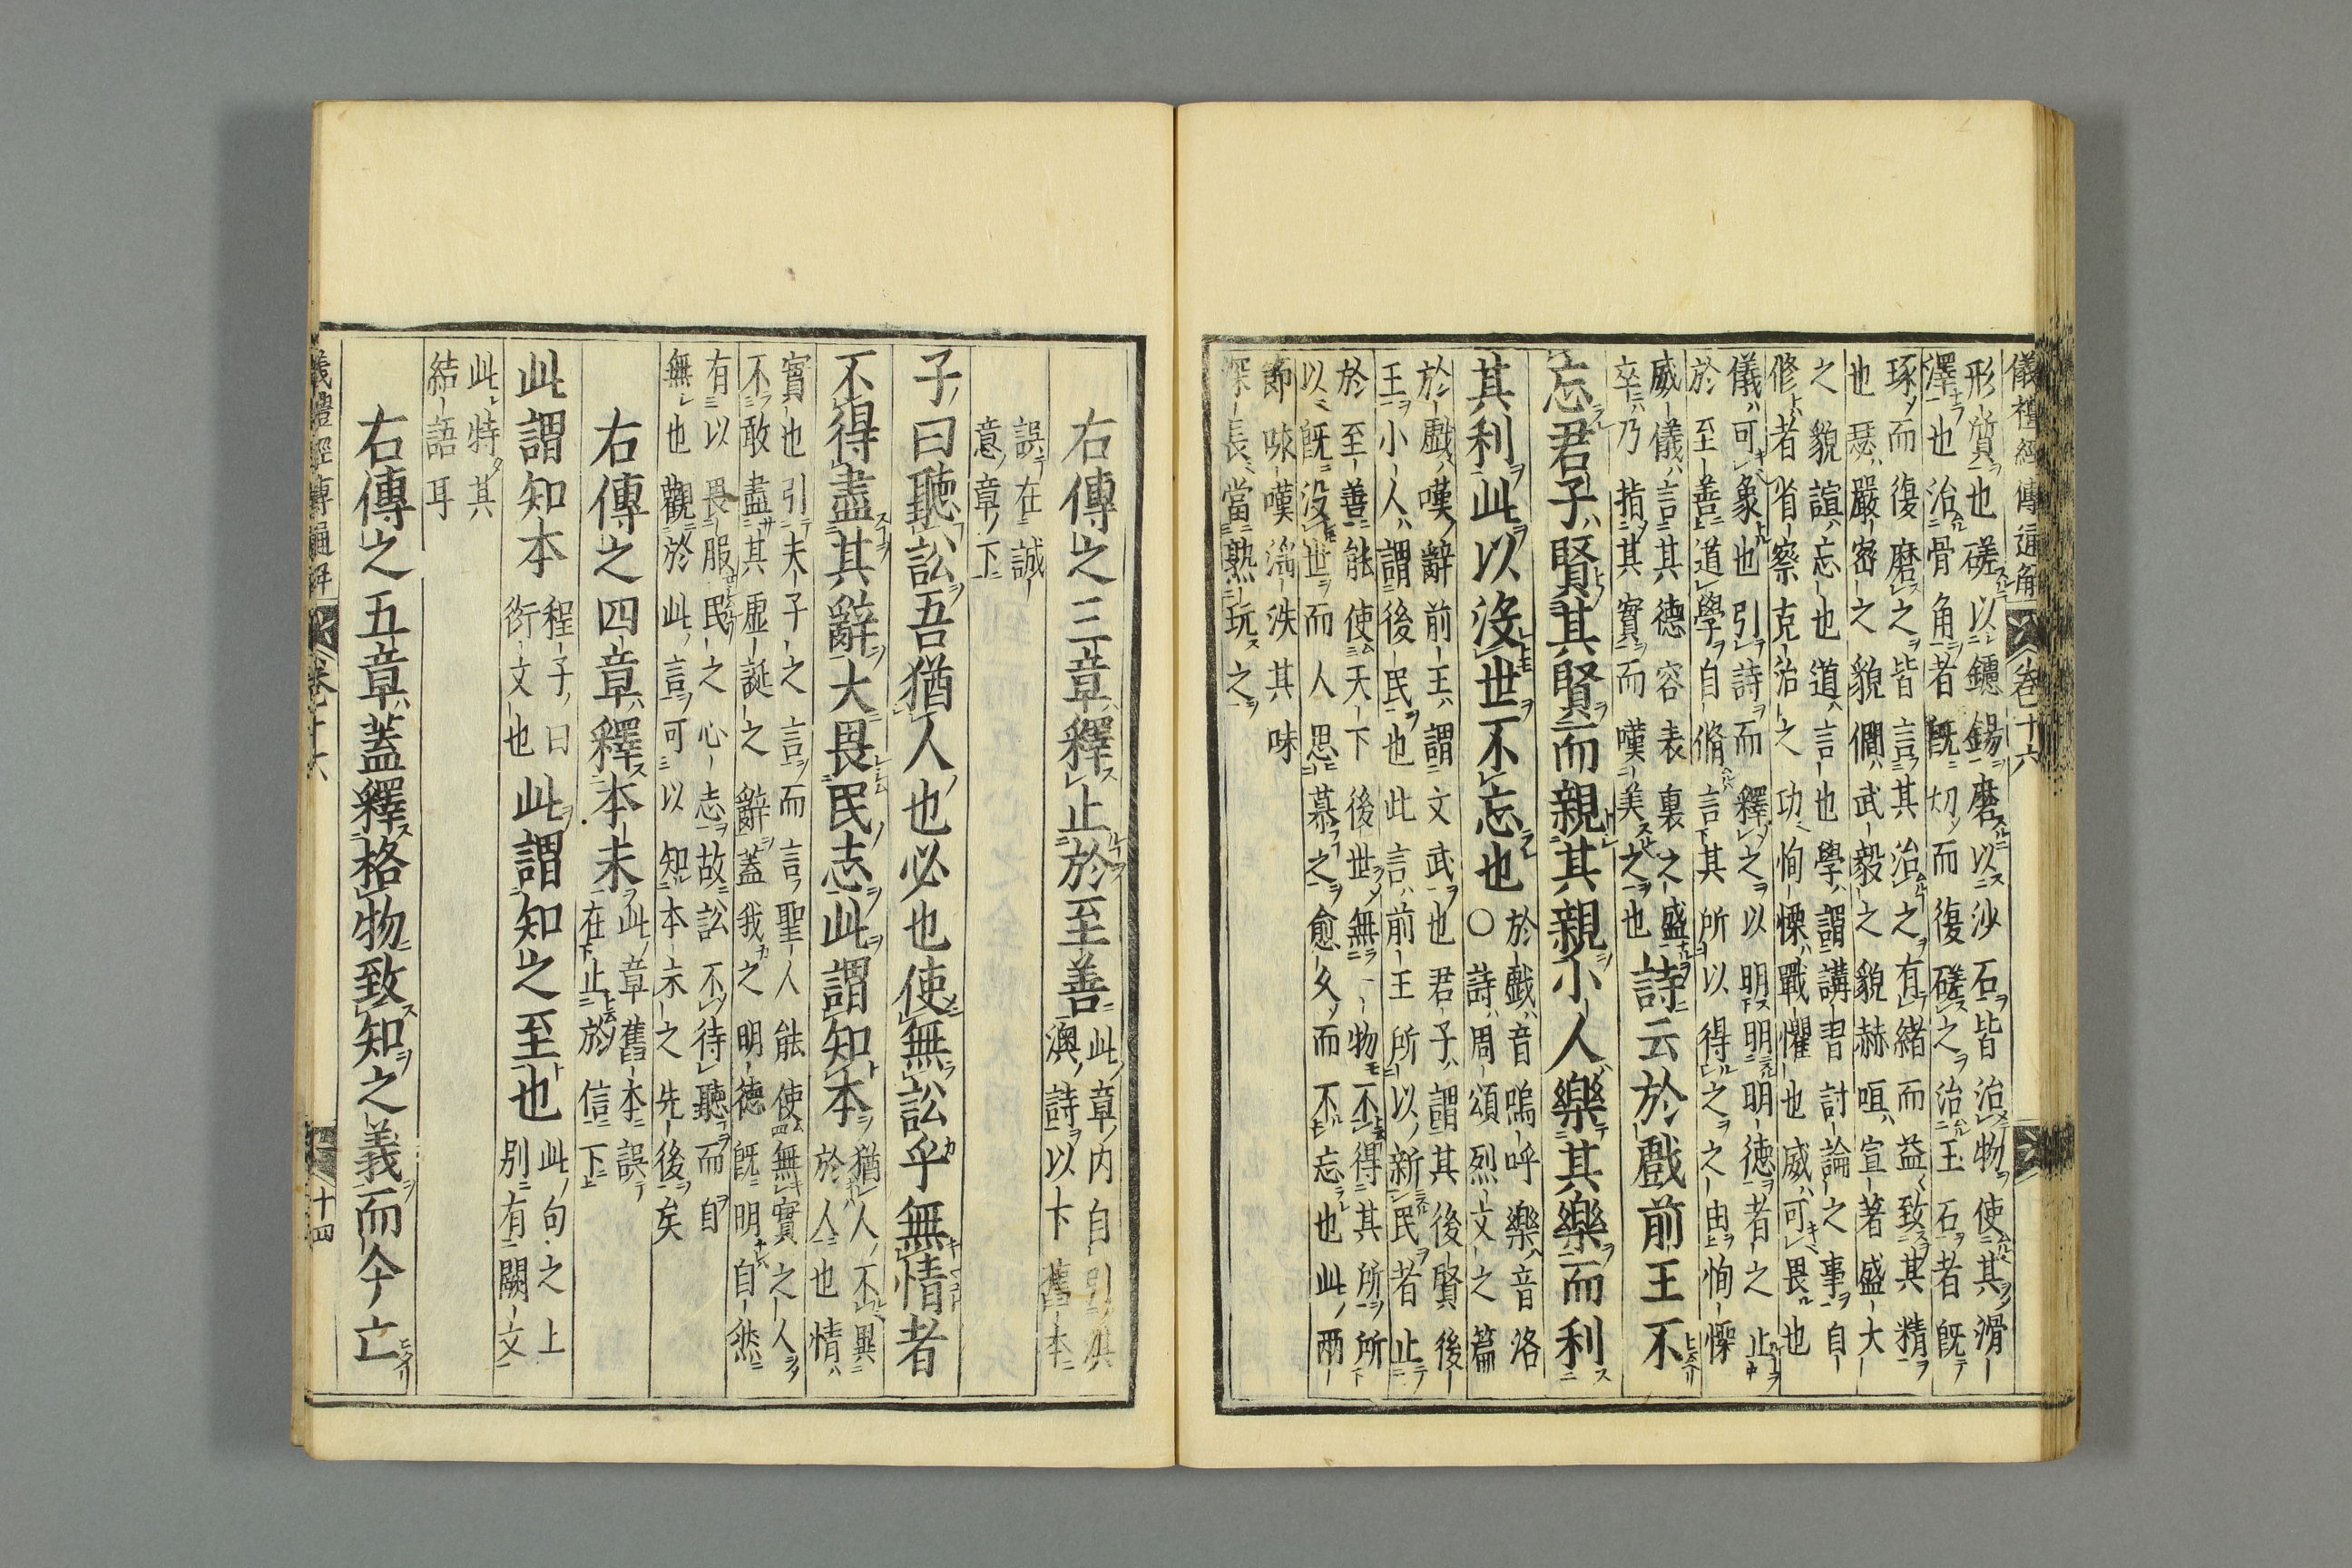 儀禮經傳通解 卷十六
形質也磋以鑢鍚磨以沙石皆治物使其滑
澤也治骨角者既切而復磋之治玉石者既
琢而復磨之皆言其治之有緒而益致其精
也瑟嚴密之貌僩武毅之貌赫咺宣著盛大
之貌諠忘也道言也學謂講習討論之事自
修者省察克治之功恂慄戰懼也威可畏也
儀可象也引詩而釋之以明明明德者之止
於至善道學自脩言其所以得之之由恂慄
威儀言其德容表裏之盛
卒乃指其實而嘆美之也
詩云於戲前王不
忘君子賢其賢而親其親小人樂其樂而利
其利此以沒世不忘也
於戲音嗚呼樂音洛
○詩周頌烈文之篇
於戲嘆辭前王謂文武也君子謂其後賢後
王小人謂後民也此言前王所以新民者止
於至善能使天下後世無一物不得其所所
以既没世而人思慕之愈久而不忘也此兩
節咏嘆滛泆其味
深長當熟玩之
右傳之三章釋止於至善
此章内自引淇
澳詩以下舊本
誤在誠
意章下
子曰聽訟吾猶人也必也使無訟乎無情者
不得盡其辭大畏民志此謂知本
猶人不異
於人也情
實也引夫子之言而言聖人能使無實之人
不敢盡其虛誕之辭蓋我之明德既明自然
有以畏服民之心志故訟不待聽而自
無也觀於此言可以知本末之先後矣
右傳之四章釋本末
此章舊本誤
在止於信下
此謂知本
程子曰
衍文也
此謂知之至也
此句之上
別有闕文
此特其
結語耳
右傳之五章蓋釋格物致知之義而今亡
儀禮經傳通解 卷十六 十四